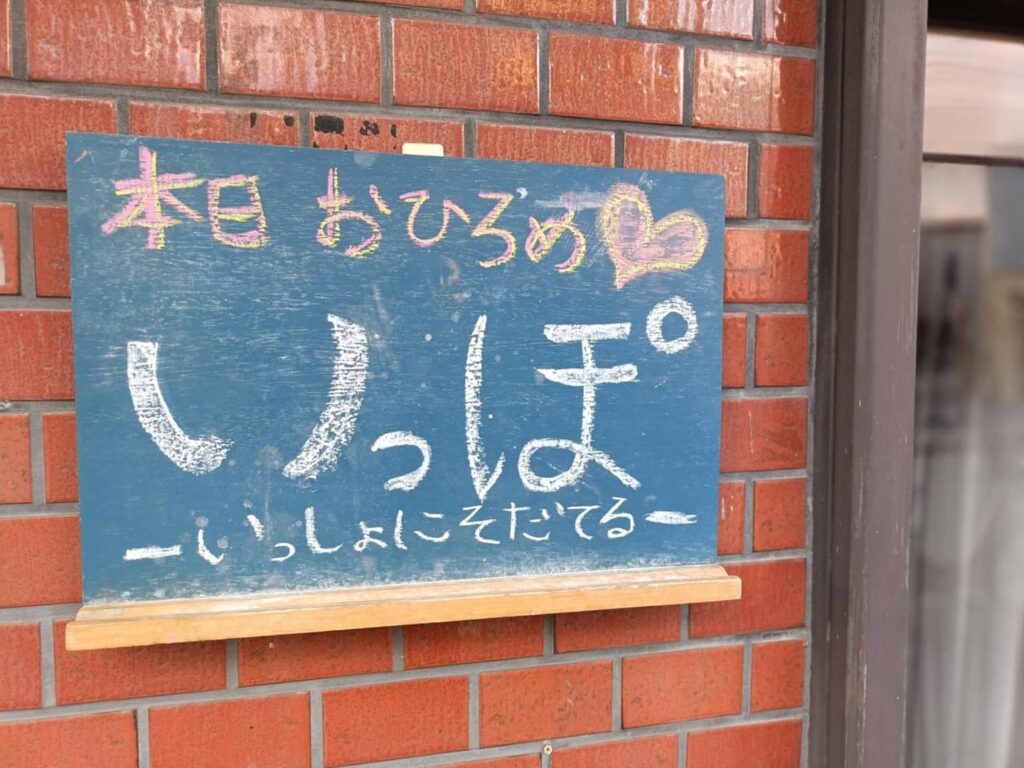 本日 おひろめ
いっぽ
ーいっしょにそだてるー